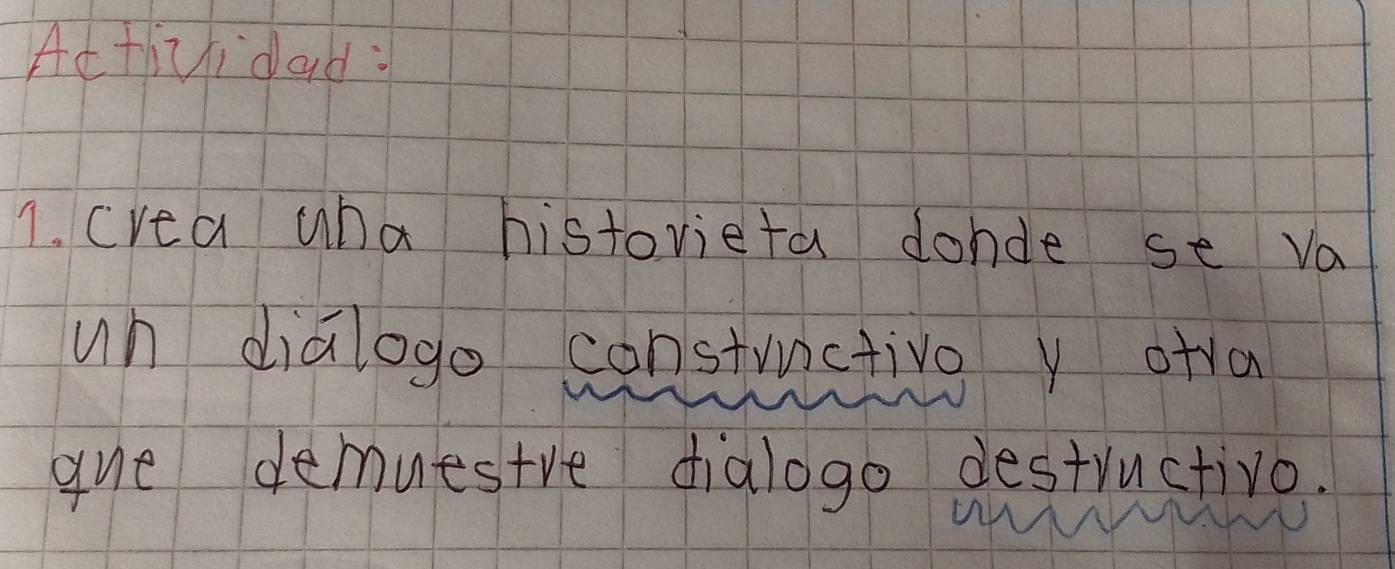 Actividad:
1. crea una historieta donde se va
un diálogo constructivo y otra
que demuestre dialogo destructivo.